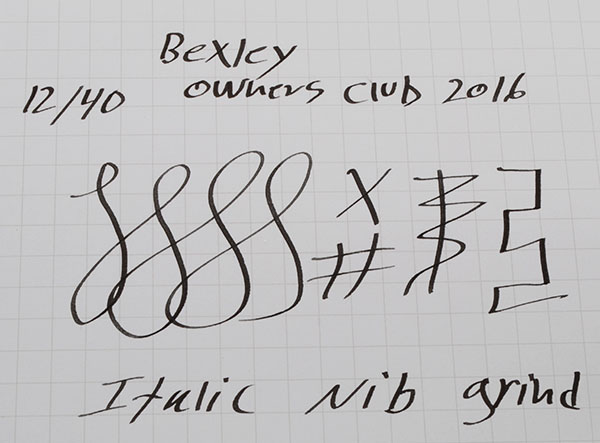 Bexley
12/40 owners club 2016
X
#
Italic Nib grind